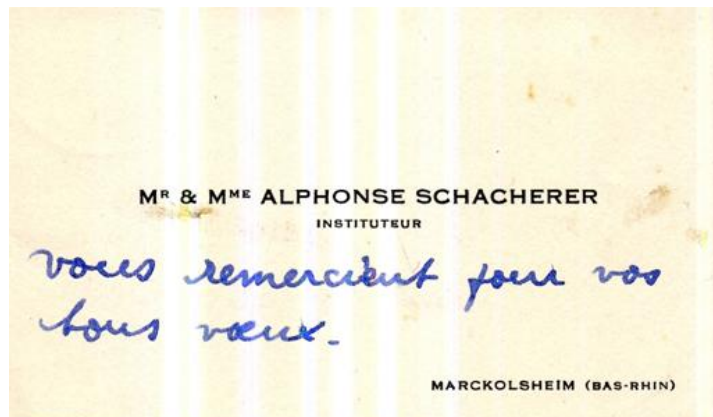 Mᴿ & Mᴹᴱ ALPHONSE SCHACHERER
INSTITUTEUR
vous remercient pour vos
bons vœux.
MARCKOLSHEIM (BAS-RHIN)